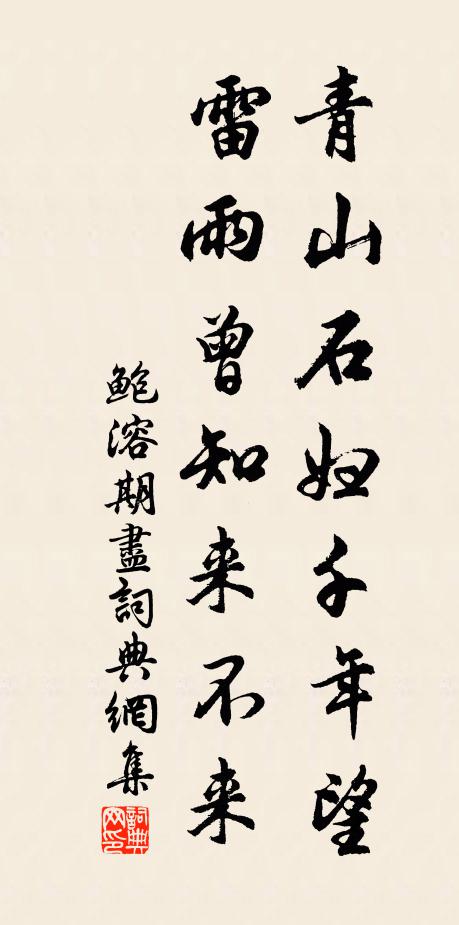 青山石妇千年望
雷雨曾知来不来
鲍溶期盡詞典網集
詞典網印